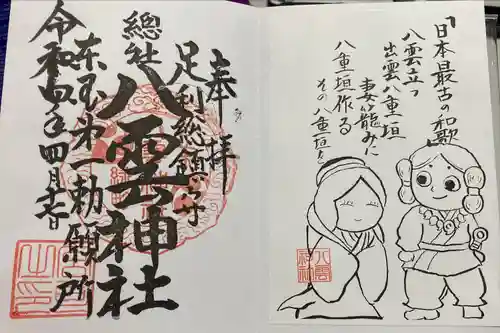 奉拝
足利総鎮守
總社八雲神社
東国第一勅願所
令和四年四月廿日
「日本最古の和歌
八雲立つ
出雲八重垣
妻籠みに
八重垣作る
その八重垣を
八雲
神社